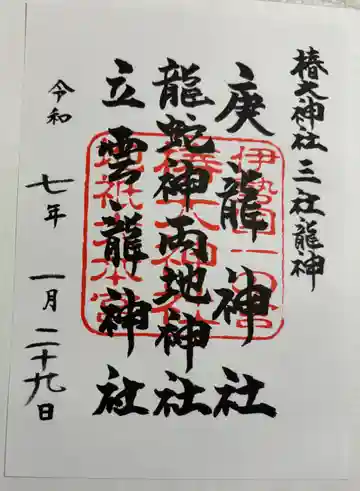 椿大神社 三社龍神
庚龍神社
龍蛇神両地神社
立雲龍神社
令和 七年 一月 二十九日
伊勢国一の宮
椿大神社
地祇大本宮